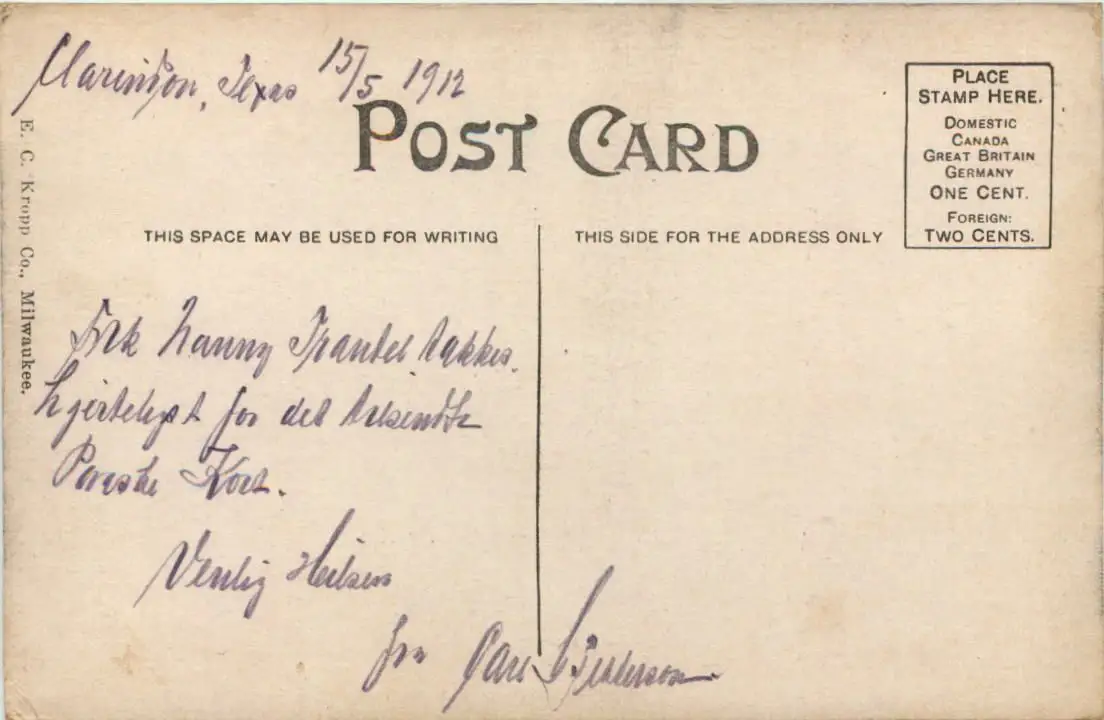 Texas 15/5 1912
POST CARD
PLACE
STAMP HERE.
DOMESTIC
CANADA
GREAT BRITAIN
GERMANY
ONE CENT.
FOREIGN:
TWO CENTS.
E. C. Kropp Co., Milwaukee.
THIS SPACE MAY BE USED FOR WRITING
THIS SIDE FOR THE ADDRESS ONLY
Frk Nanny takkes
hjerteligst for det tilsendte
Paaske Kort.
Venlig Hilsen
fra Carl